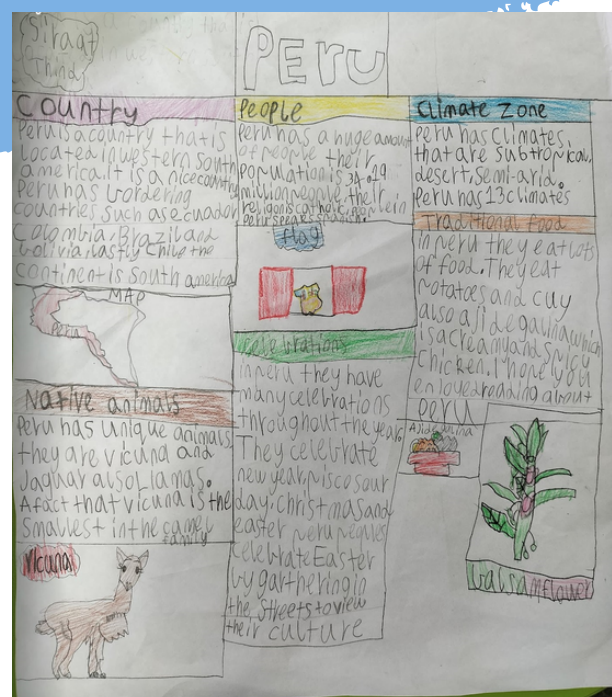 Siraat
Thind
PERU
Country
Peru is a country that is
located in western south
america. It is a nice country
Peru has bordering
countries such as ecuador
Colombia, Brazil and
bolivia, lastly Chile the
continent is South america
MAP
Peru
Native animals
Peru has unique animals
they are vicuna and
Jaguar also llamas.
A fact that vicuna is the
smallest in the camel
family
vicuna
People
Peru has a huge amount
of people their
population is 34.029
million people, their
religon is catholic, people in
peru speaks spanish.
flag
celebrations
in peru they have
many celebrations
throughout the year.
They celebrate
new year, pisco sour
day, christmas and
easter peru peoples
celebrate Easter
by garthering in
the streets to view
their culture
Climate Zone
Peru has Climates,
that are subtropical,
desert, semi-arid.
Peru has 13 climates
Traditional food
in peru they eat lots
of food. They eat
potatoes and cuy
also aji de gallina which
is a creamy and spicy
chicken. I hope you
enjoyed reading about
peru
Aji de gallina
flower